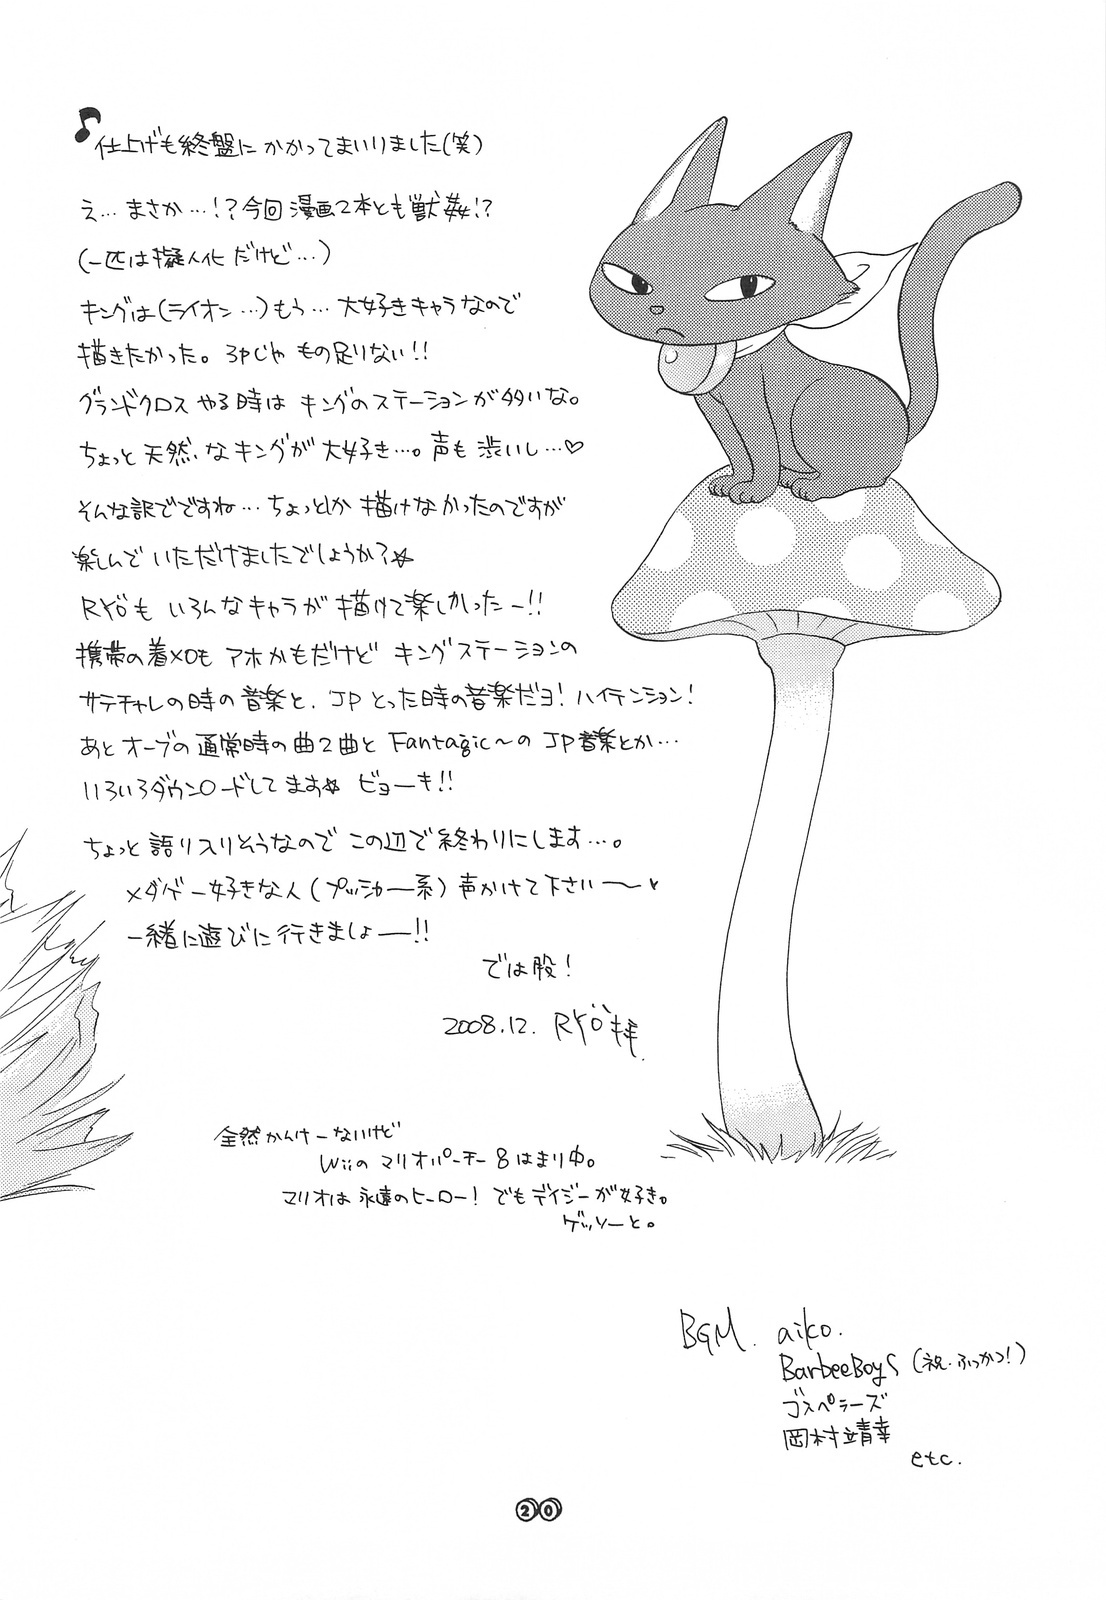 仕上げも終盤にかかってまいりました(笑)
え…まさか…!?今回漫画2本とも獣姦!?
(一匹は擬人化だけど…)
キングは(ライオン…)もう…大好きキャラなので
描きたかった。3Pじゃもの足りない!!
グランドクロスやる時はキングのステーションが多いな。
ちょっと天然なキングが大好き…。声も渋いし…♡
そんな訳でですね…ちょっとしか描けなかったのですが
楽しんでいただけましたでしょうか?☆
RYÖもいろんなキャラが描けて楽しかったー!!
携帯の着メロもアホかもだけどキングステーションの
サテチャレの時の音楽と、JPとった時の音楽だヨ!ハイテンション!
あとオーブの通常時の曲2曲とFantagic〜のJP音楽とか…
いろいろダウンロードしてます☆ビョーキ!!
ちょっと語り入りそうなのでこの辺で終わりにします…。
メダゲー好きな人(プッシャー系)声かけて下さい〜
一緒に遊びに行きましょー!!
では股!
2008.12. RYÖ拝.
全然かんけーないけど
Wiiのマリオパーチー8はまり中。
マリオは永遠のヒーロー!でもデイジーが好き。
ゲッソーと。
BGM. aiko.
BarbeeBoys(祝・ふっかつ!)
ゴスペラーズ
岡村靖幸
etc.
20